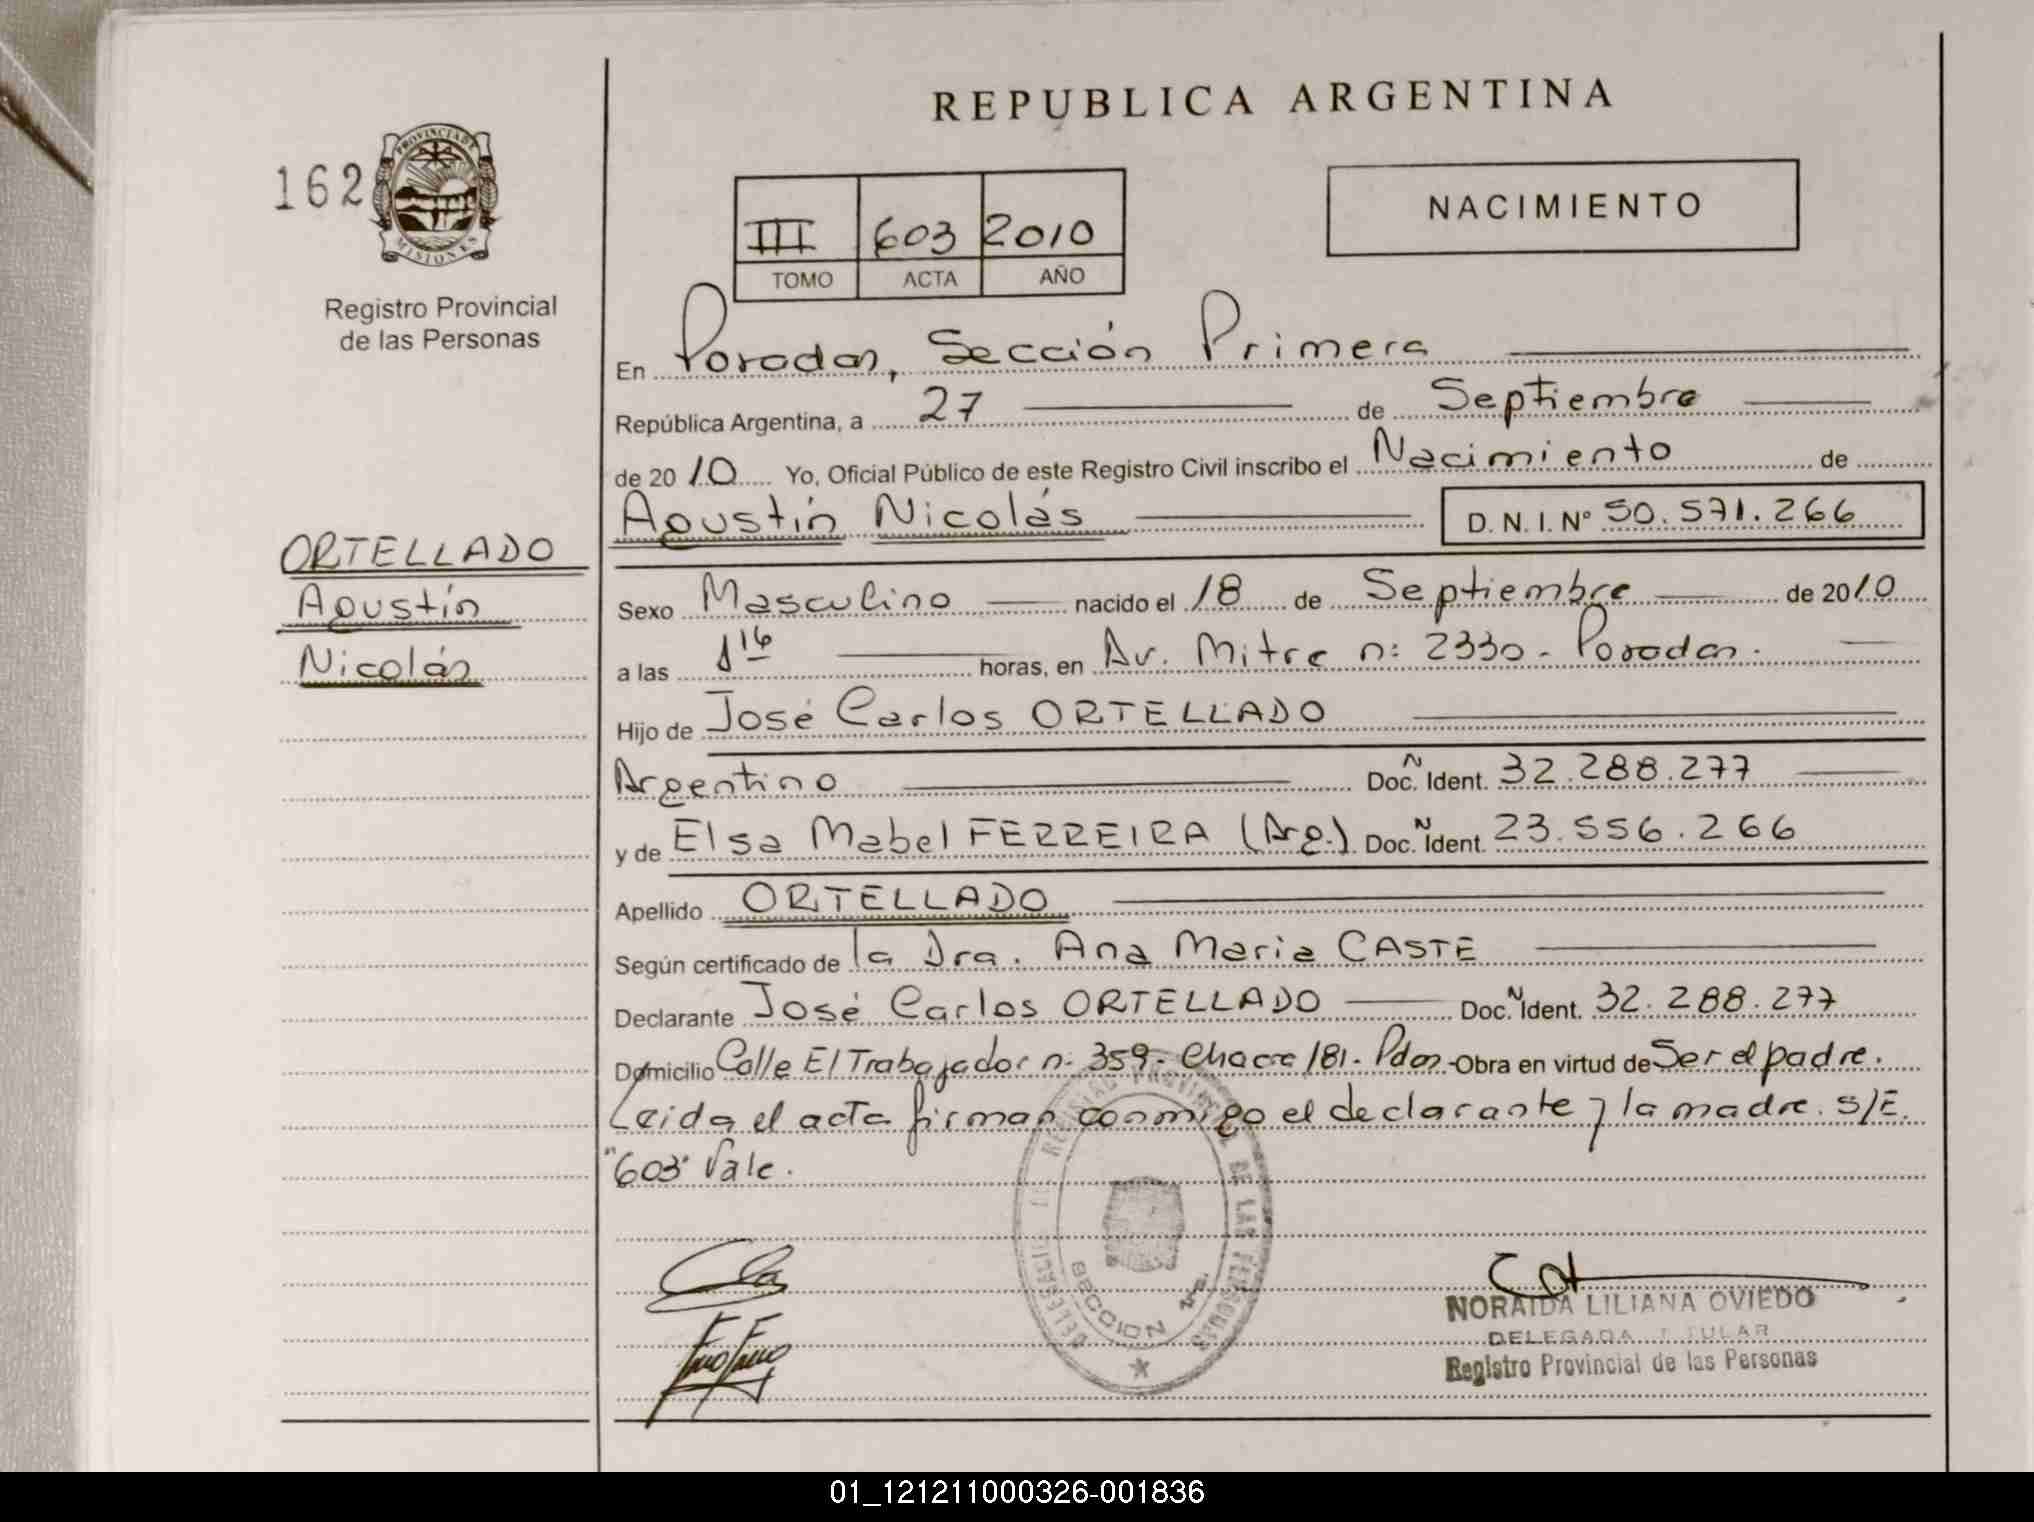 REPUBLICA ARGENTINA
162
PROVINCIA DE
MISIONES
Registro Provincial
de las Personas
III 603 2010
TOMO ACTA AÑO
NACIMIENTO
En Posadas, Sección Primera
República Argentina, a 27 de Septiembre
de 2010 Yo, Oficial Público de este Registro Civil inscribo el Nacimiento de
Agustín Nicolás D. N. I. Nº 50.571.266
ORTELLADO
Agustín
Nicolás
Sexo Masculino nacido el 18 de Septiembre de 2010
a las 1 16 horas, en Av. Mitre n: 2330 - Posadas.
Hijo de José Carlos ORTELLADO
Argentino Doc. N Ident. 32.288.277
y de Elsa Mabel FERREIRA (Arg.) Doc. N Ident. 23.556.266
Apellido ORTELLADO
Según certificado de la Dra. Ana Maria CASTE
Declarante José Carlos ORTELLADO Doc. N Ident. 32.288.277
Domicilio Calle El Trabajador n: 359 - Chacra 181 - Pdas - Obra en virtud de Ser el padre.
Leida el acta firman conmigo el declarante y la madre. S/E.
"603" Vale.
DELEGACION REGISTRO PROVINCIAL DE LAS PERSONAS
SECCION 1ra.
NORAIDA LILIANA OVIEDO
DELEGADA TITULAR
Registro Provincial de las Personas
01_121211000326-001836